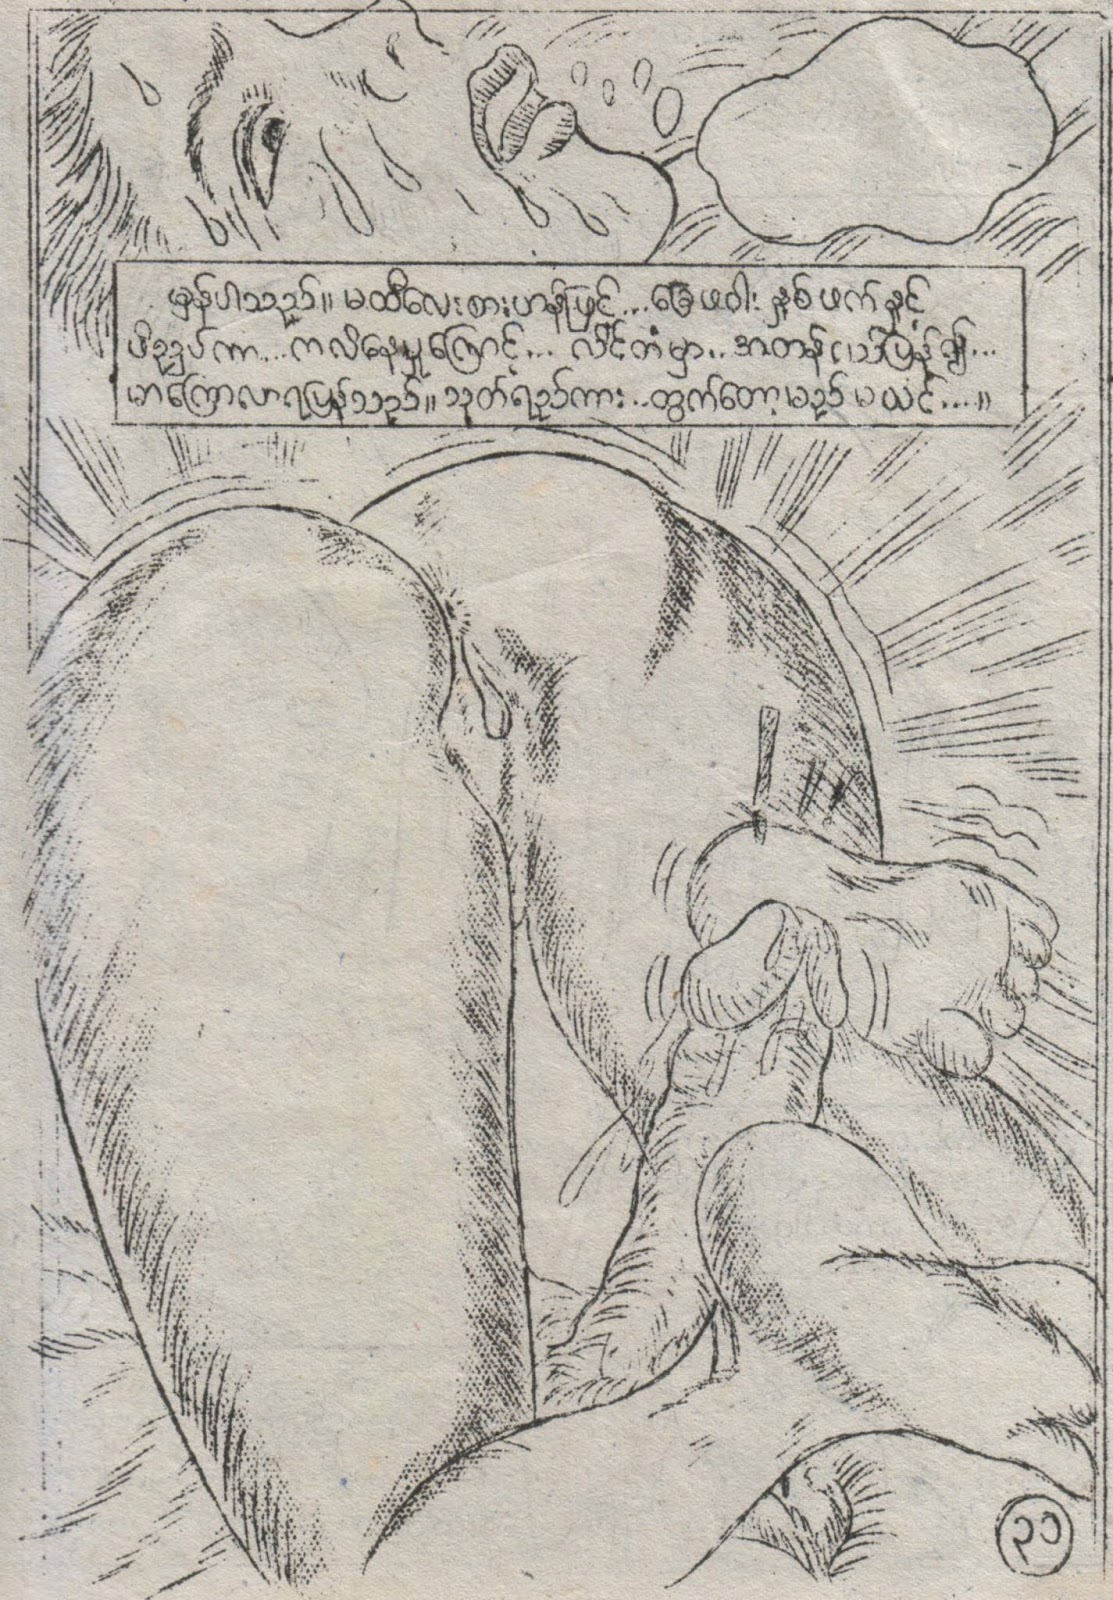 မှန်ပါသည်။ မထိလေးစားဟန်ဖြင့်...ခြေဖဝါး နှစ်ဖက်နှင့်
ဖိညှပ်ကာ...ကလိနေမှုကြောင့်... လိင်တံမှာ.. အတန်ငယ်ပြန်၍...
မာကြောလာရပြန်သည်။ သုတ်ရည်ကား..ထွက်တော့မည် မယင်....။
၃၁